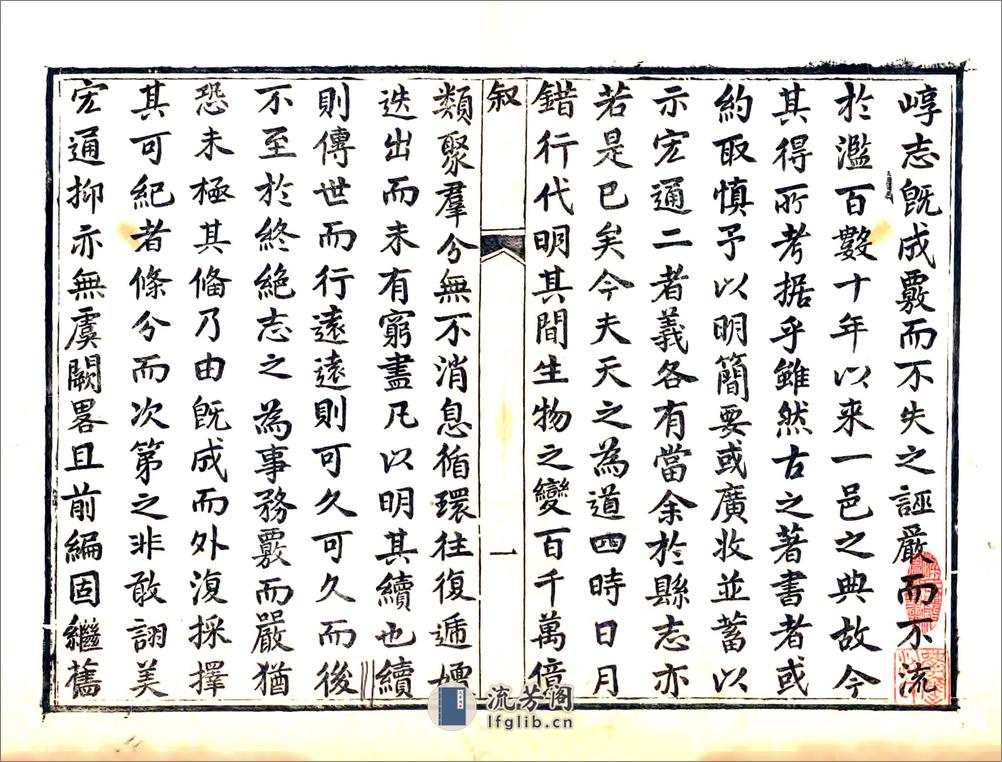 崞志旣成覈而不失之誣嚴而不流
於濫百數十年以來一邑之典故今
其得所考据乎雖然古之著書者或
約取慎予以明簡要或廣收並蓄以
示宏通二者義各有當余於縣志亦
若是巳矣今夫天之為道四時日月
錯行代明其間生物之變百千萬億
叙
一
類聚羣分無不消息循環往復遞嬗
迭出而未有窮盡凡以明其續也續
則傳世而行遠遠則可久可久而後
不至於終絶志之為事務覈而嚴猶
恐未極其俻乃由旣成而外復採擇
其可紀者條分而次第之非敢詡美
宏通抑亦無虞闕畧且前編固繼舊
流芳阁
lfglib.cn